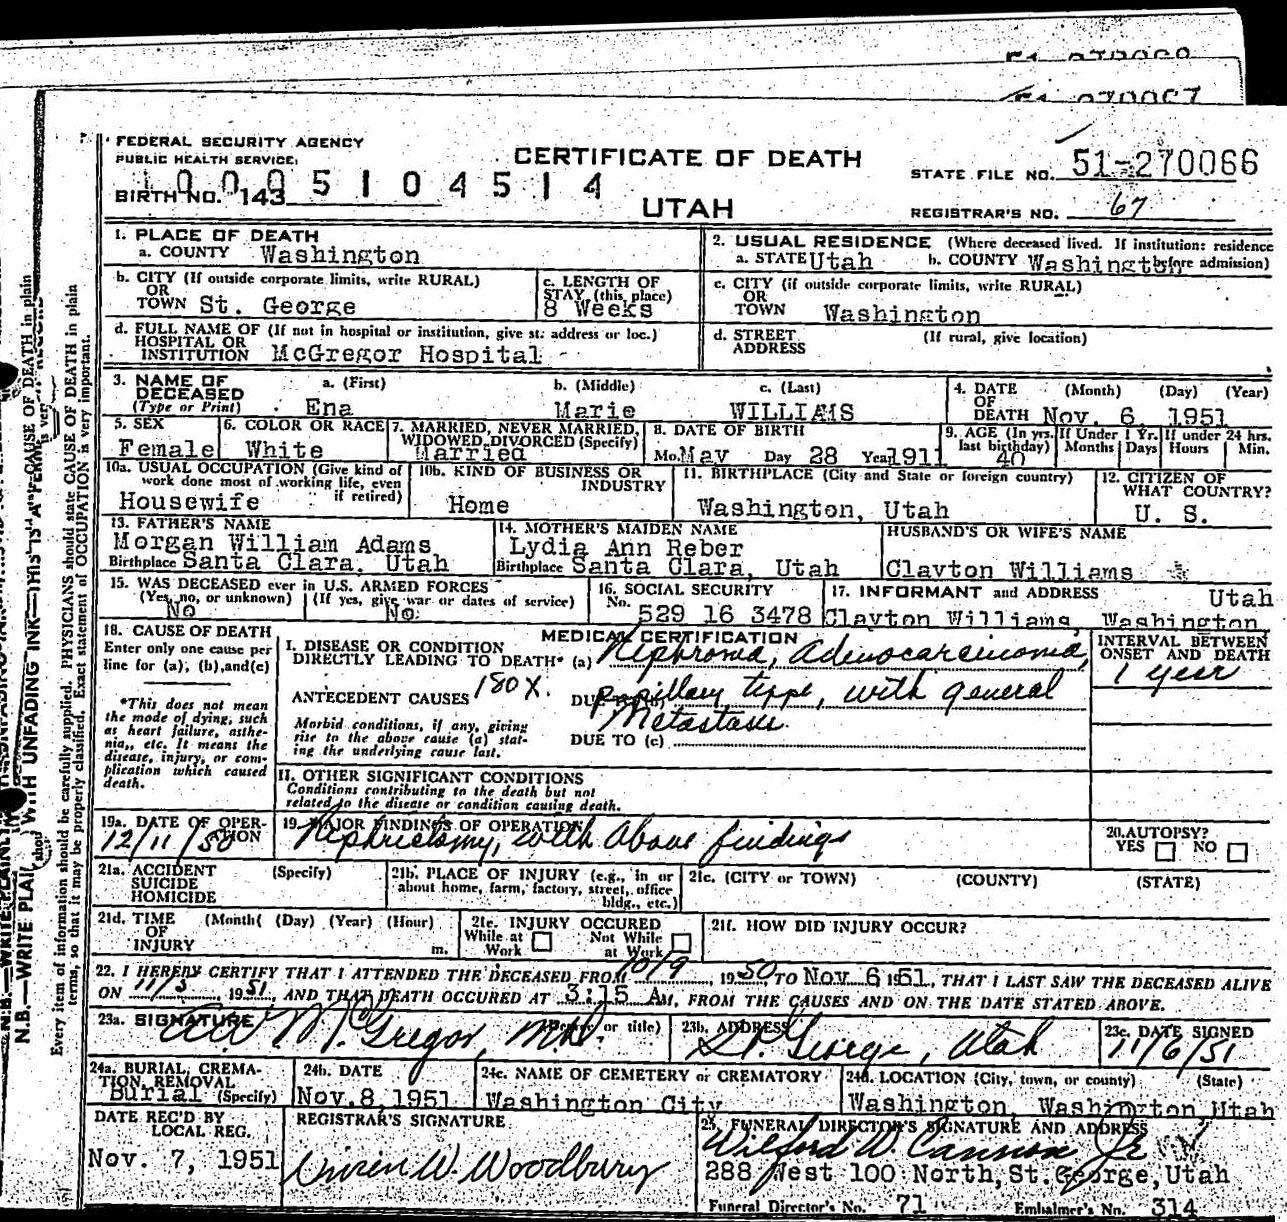 FEDERAL SECURITY AGENCY
PUBLIC HEALTH SERVICE
CERTIFICATE OF DEATH
STATE FILE NO. 51-270066
10005104514
BIRTH NO. 143
UTAH
REGISTRAR'S NO. 67
1. PLACE OF DEATH
a. COUNTY Washington
2. USUAL RESIDENCE (Where deceased lived. If institution: residence before admission)
a. STATE Utah b. COUNTY Washington
b. CITY (If outside corporate limits, write RURAL)
OR
TOWN St. George
c. LENGTH OF
STAY (this place)
8 Weeks
c. CITY (if outside corporate limits, write RURAL)
OR
TOWN Washington
d. FULL NAME OF (If not in hospital or institution, give st. address or loc.)
HOSPITAL OR
INSTITUTION McGregor Hospital
d. STREET (If rural, give location)
ADDRESS
3. NAME OF
DECEASED
(Type or Print)
a. (First) b. (Middle) c. (Last)
Ena Marie WILLIAMS
4. DATE (Month) (Day) (Year)
OF
DEATH Nov. 6, 1951
5. SEX
Female
6. COLOR OR RACE
White
7. MARRIED, NEVER MARRIED,
WIDOWED, DIVORCED (Specify)
Married
8. DATE OF BIRTH
Mo. May Day 28 Year 1911
9. AGE (In yrs. last birthday)
40
If Under 1 Yr.
Months Days
If under 24 hrs.
Hours Min.
10a. USUAL OCCUPATION (Give kind of
work done most of working life, even
if retired)
Housewife
10b. KIND OF BUSINESS OR
INDUSTRY
Home
11. BIRTHPLACE (City and State or foreign country)
Washington, Utah
12. CITIZEN OF
WHAT COUNTRY?
U. S.
13. FATHER'S NAME
Morgan William Adams
Birthplace Santa Clara, Utah
14. MOTHER'S MAIDEN NAME
Lydia Ann Reber
Birthplace Santa Clara, Utah
HUSBAND'S OR WIFE'S NAME
Clayton Williams
15. WAS DECEASED ever in U.S. ARMED FORCES
(Yes, no, or unknown) (If yes, give war or dates of service)
No No
16. SOCIAL SECURITY
No. 529 16 3478
17. INFORMANT and ADDRESS Utah
Clayton Williams, Washington
18. CAUSE OF DEATH
Enter only one cause per
line for (a), (b), and (c)
*This does not mean
the mode of dying, such
as heart failure, asthe-
nia, etc. It means the
disease, injury, or com-
plication which caused
death.
MEDICAL CERTIFICATION
I. DISEASE OR CONDITION
DIRECTLY LEADING TO DEATH* (a) Nephroma, Adenocarcinoma,
ANTECEDENT CAUSES 180X. DUE TO (b) papillary type, with general
Metastasis.
Morbid conditions, if any, giving
rise to the above cause (a) stat-
ing the underlying cause last.
DUE TO (c)
INTERVAL BETWEEN
ONSET AND DEATH
1 year
II. OTHER SIGNIFICANT CONDITIONS
Conditions contributing to the death but not
related to the disease or condition causing death.
19a. DATE OF OPER-
ATION
12/11/50
19. MAJOR FINDINGS OF OPERATION
Nephrectomy, with above findings
20. AUTOPSY?
YES NO
21a. ACCIDENT (Specify)
SUICIDE
HOMICIDE
21b. PLACE OF INJURY (e.g., in or
about home, farm, factory, street, office
bldg., etc.)
21c. (CITY or TOWN) (COUNTY) (STATE)
21d. TIME (Month) (Day) (Year) (Hour)
OF
INJURY m.
21e. INJURY OCCURED
While at Work Not While at Work
21f. HOW DID INJURY OCCUR?
22. I HEREBY CERTIFY THAT I ATTENDED THE DECEASED FROM 10/9, 1950, TO Nov. 6 1951, THAT I LAST SAW THE DECEASED ALIVE
ON 11/5 1951, AND THAT DEATH OCCURED AT 3:15 AM, FROM THE CAUSES AND ON THE DATE STATED ABOVE.
23a. SIGNATURE (Degree or title)
McGregor, M.D.
23b. ADDRESS
St. George, Utah
23c. DATE SIGNED
11/6/51
24a. BURIAL, CREMA-
TION, REMOVAL
Burial (Specify)
24b. DATE
Nov. 8, 1951
24c. NAME OF CEMETERY or CREMATORY
Washington City
24d. LOCATION (City, town, or county) (State)
Washington, Washington, Utah
DATE REC'D BY
LOCAL REG.
Nov. 7, 1951
REGISTRAR'S SIGNATURE
W. Woodbury
25. FUNERAL DIRECTOR'S SIGNATURE AND ADDRESS
Wilford W. Cannon Jr
288 West 100 North, St. George, Utah
Funeral Director's No. 71 Embalmer's No. 314
N.B.—WRITE PLAINLY WITH UNFADING INK—THIS IS A PERMANENT RECORD
Every item of information should be carefully supplied. PHYSICIANS should state CAUSE OF DEATH in plain
terms, so that it may be properly classified. Exact statement of OCCUPATION is very important.